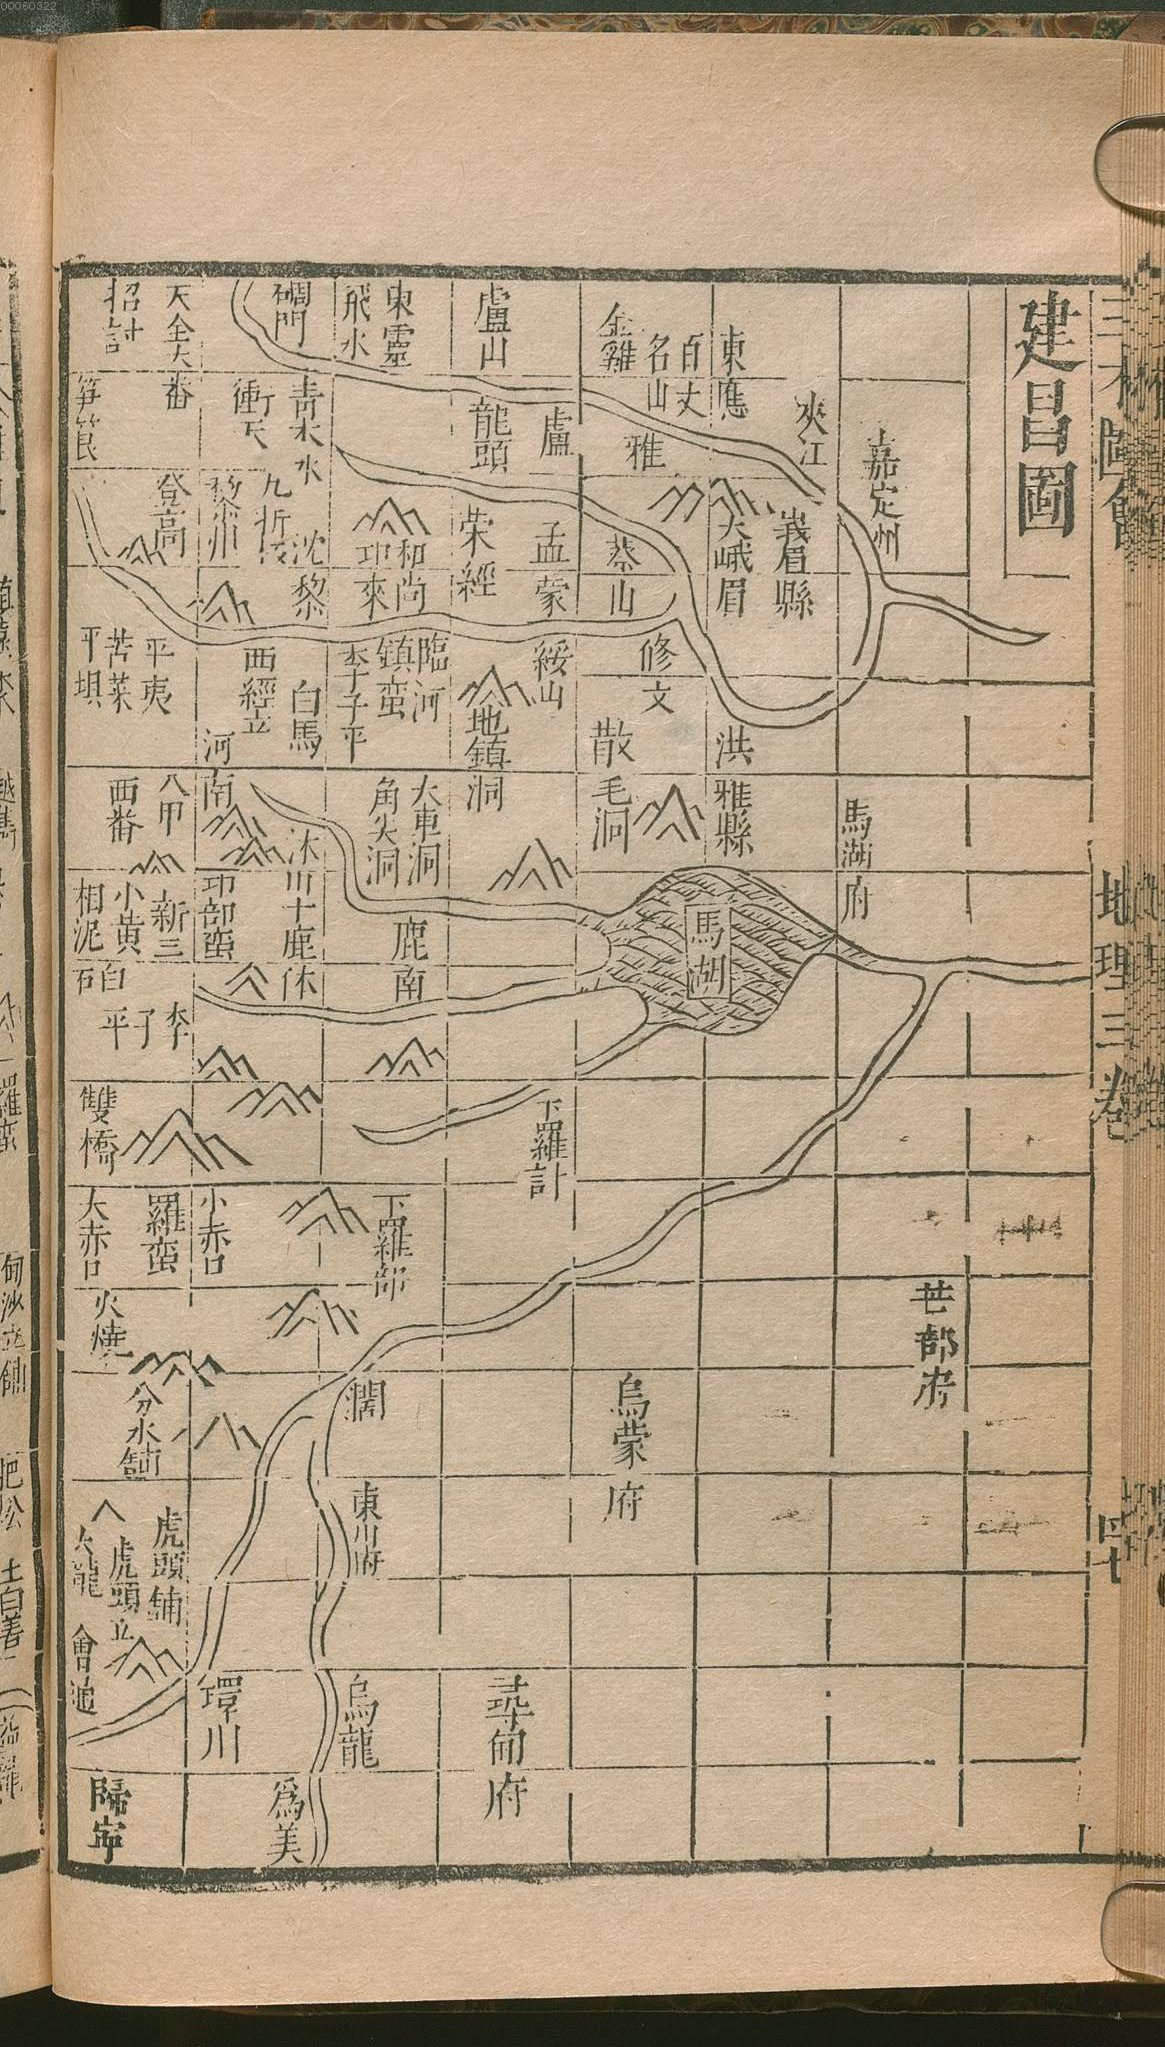 00060322
地理三卷
建昌圖
嘉定州
馬湖府
芒部府
夾江
峩眉縣
東應
大峨眉
洪雅縣
馬湖
百丈
名山
金雞
雅
蔡山
修文
散毛洞
烏蒙府
盧山
盧
龍頭
孟蒙
荣經
綏山
地鎮洞
下羅計
尋甸府
東靈
飛水
和尚
印來
臨河
鎮蛮
李子平
大車洞
角尖洞
鹿南
下羅部
東川府
烏龍
碉門
青木水
九折
沈黎
白馬
西經立
河南
沐川十鹿
印部蛮
小赤口
環川
為美
天全六番
招討
登高
平夷
苦菜
平垻
八甲
西番
新三
小黄
相泥
白石
李子平
雙橋
羅蛮
大赤口
火燒
分水舖
虎頭舖
虎頭立
大龍
會通
歸寧